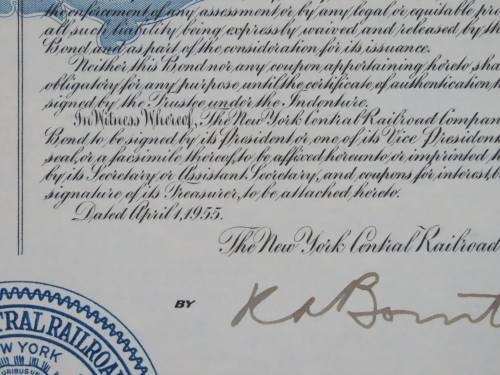 the enforcement of any assessment or by any legal or equitable pro
all such liability being expressly waived and released by th
Bond and as part of the consideration for its issuance.
Neither this Bond nor any coupon appertaining hereto sha
obligatory for any purpose until the certificate of authentication h
signed by the Trustee under the Indenture.
In Witness Whereof, The New York Central Railroad Compan
Bond to be signed by its President or one of its Vice Presiden
seal, or a facsimile thereof, to be affixed hereunto or imprinted
by its Secretary or Assistant Secretary, and coupons for interest, b
signature of its Treasurer, to be attached hereto.
Dated April 1, 1955.
The New York Central Railroad
BY
NTRAL RAILROA
EW YORK